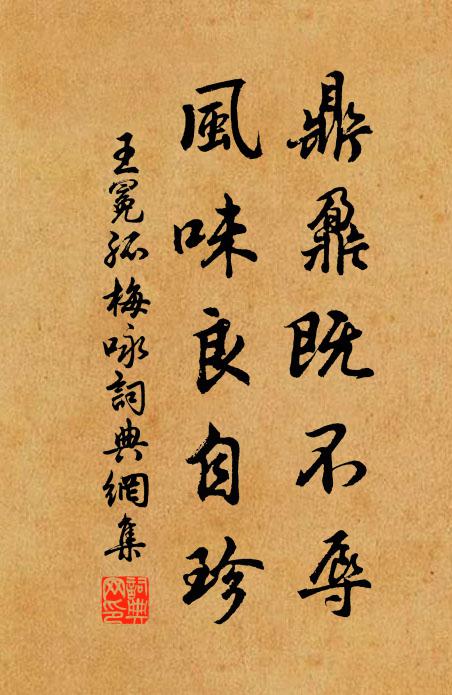 鼎鼐既不辱
風味良自珍
王冕孤梅咏詞典網集
詞典網印